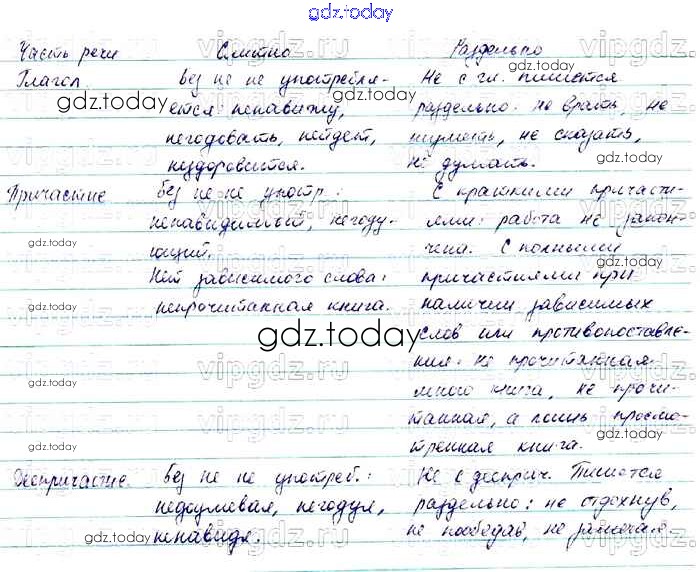 gdz.today
Часть речи Слитно Раздельно
Глагол. Без не не употребля- Не с гл. пишется
ется: ненавижу, раздельно: не врать, не
негодовать, неймет, шуметь, не сказать,
нездоровится. не думать.
Причастие Без не не употр.: С краткими причасти-
ненавидимый, негоду- ями: работа не закон-
ющий. чена. С полными
Нет зависимого слова: причастиями при
непрочитанная книга. наличии зависимых
слов или противопоставле-
ния: не прочитанная
мною книга, не прочи-
танная, а лишь просмо-
тренная книга.
Деепричастие. Без не не употреб.: Не с дееприч. Пишется
недоумевая, негодуя, раздельно: не отдохнув,
ненавидя. не пообедав, не замечая